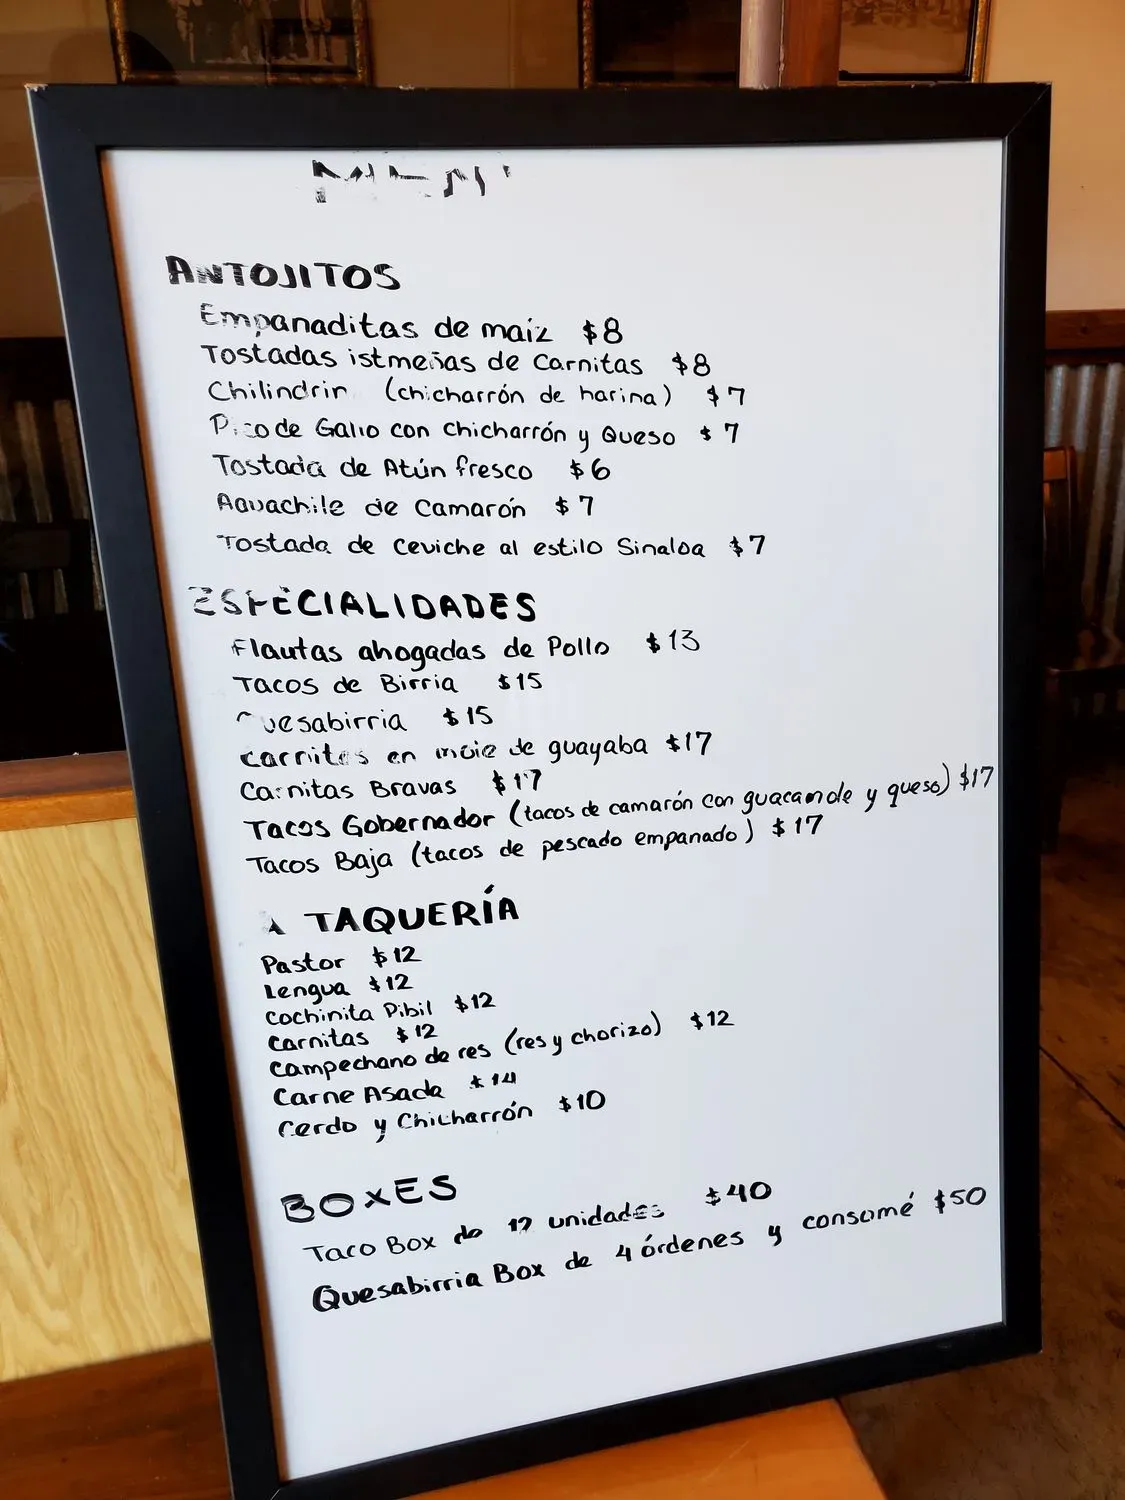 ANTOJITOS
Empanaditas de maíz $8
Tostadas istmeñas de Carnitas $8
Chilindrin (chicharrón de harina) $7
Pico de Gallo con chicharrón y Queso $7
Tostada de Atún fresco $6
Aguachile de Camarón $7
Tostada de Ceviche al estilo Sinaloa $7
ESPECIALIDADES
Flautas ahogadas de Pollo $13
Tacos de Birria $15
Quesabirria $15
Carnitas en mole de guayaba $17
Carnitas Bravas $17
Tacos Gobernador (tacos de camarón con guacamole y queso) $17
Tacos Baja (tacos de pescado empanado) $17
TAQUERÍA
Pastor $12
Lengua $12
Cochinita Pibil $12
Carnitas $12
Campechano de res (res y chorizo) $12
Carne Asada $14
Cerdo y Chicharrón $10
BOXES
Taco Box de 12 unidades $40
Quesabirria Box de 4 órdenes y consomé $50